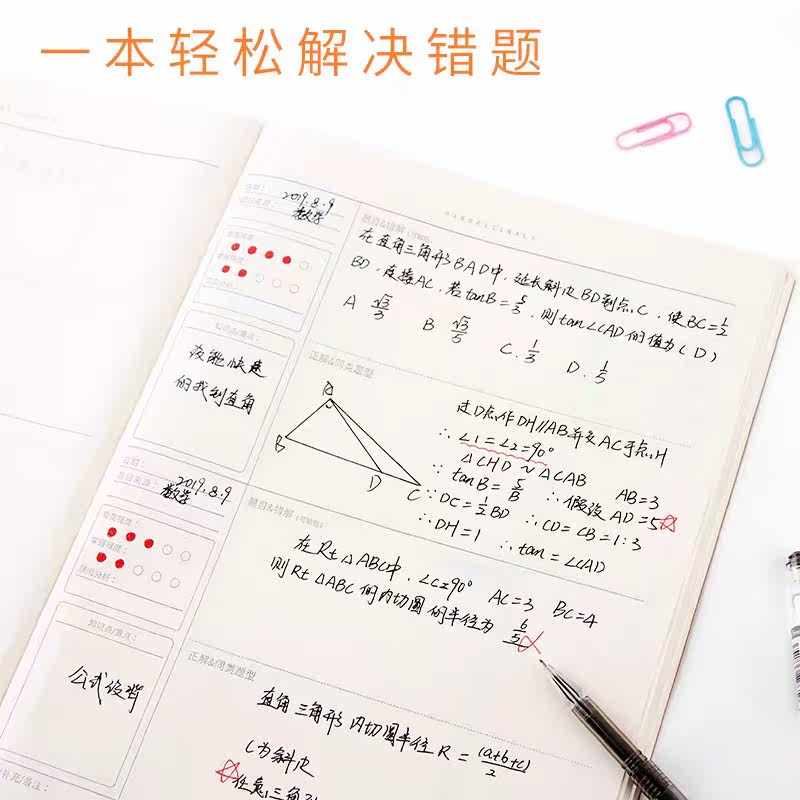 一本轻松解决错题
日期：
2019.8.9
题目来源：
数学
重要程度：
掌握程度：
错误分析：
知识点/重点：
没能快速
的找到直角
题目&错解（可粘贴）
在直角三角形BAD中，延长斜边BD到点C，使BC=1/2
BD，连接AC，若tanB=5/3，则tan∠CAD的值为（D）
A √3/3 B √3/5 C. 1/3 D. 1/5
正解&同类题型
A
B
D
C
过D点，作DH//AB并交AC于点H
∴∠1=∠2=90°
△CHD∽△CAB
∵tanB=5/B ∴假设 AB=3
AD=5
∵DC=1/2BD ∴CD=CB=1:3
∴DH=1 ∴tan=∠CAD
日期：
2019.8.9
题目来源：
数学
重要程度：
掌握程度：
错误分析：
知识点/重点：
公式没背
题目&错解（可粘贴）
在Rt△ABC中，∠C=90° AC=3 BC=4
则Rt△ABC的内切圆的半径为 6/5
正解&同类题型
直角三角形内切圆半径R=(a+b+c)/2
C为斜边
任意三角
补充/备注：